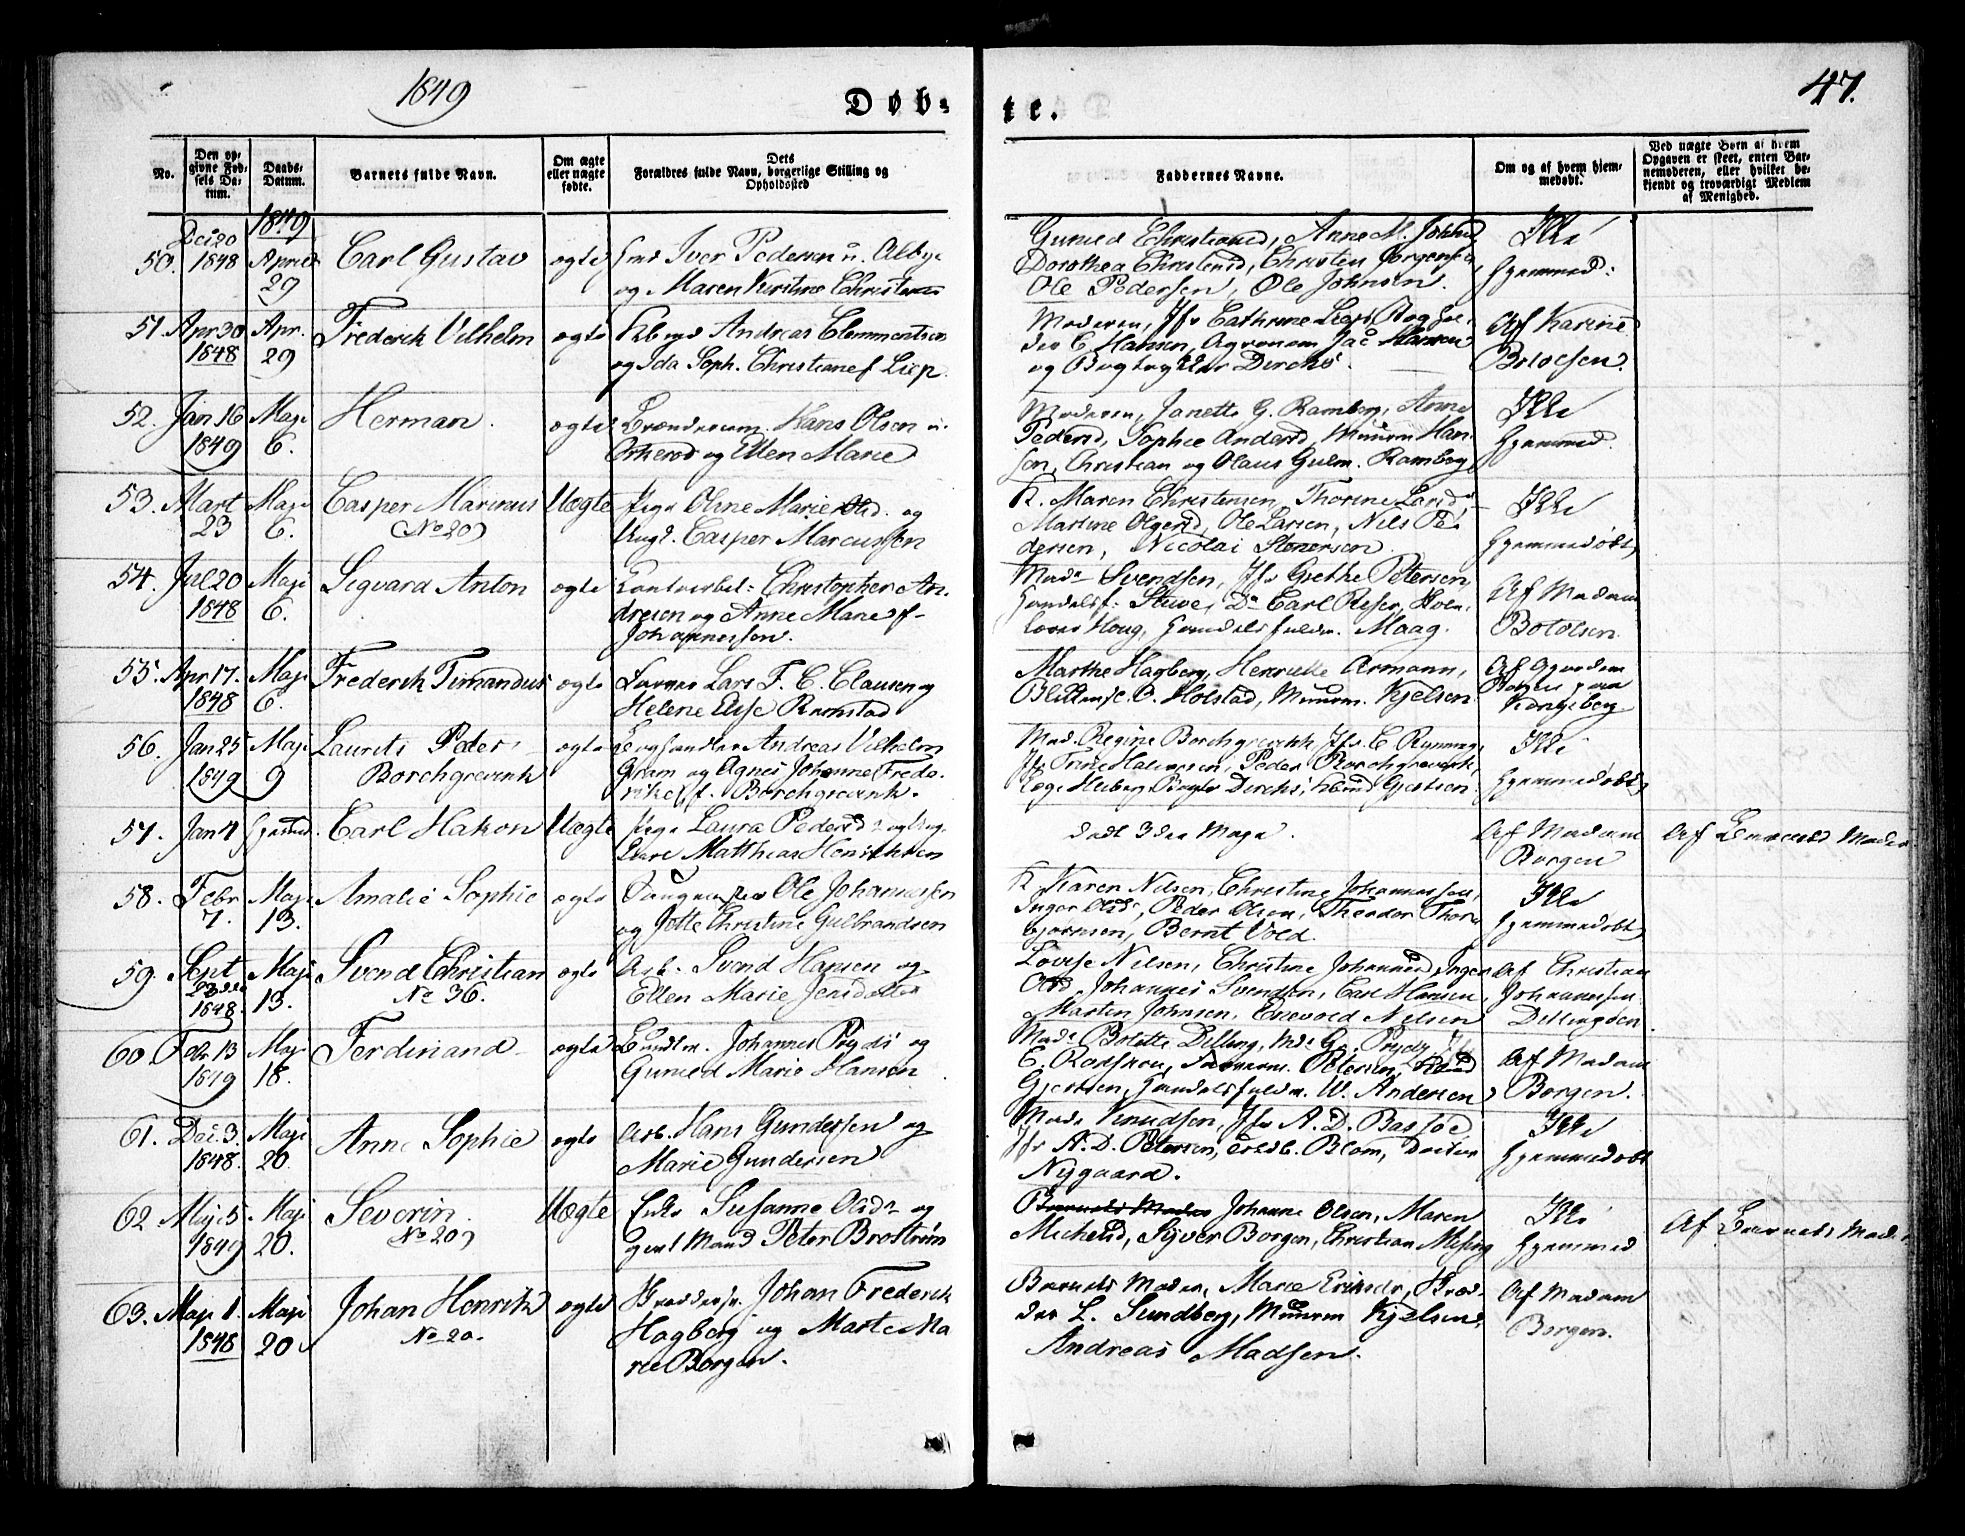 1849
47.
Døb-
te.
No.
Den op-
givne Fød-
sels Da-
tum.
Daabs-
Datum.
Barnets fulde Navn.
Om ægte
eller uægte
fødte.
Dets
Forældres fulde Navn, borgerlige Stilling og
Opholdssted
Faddernes Navne.
Om og af hvem hjem-
medøbt.
Ved uægte Børn af hvem
Opgaven er skeet, enten Bar-
nemoderen, eller hvilket be-
kjendt og troværdigt Medlem
af Menighed.
50. Dec 20
1848
1849
April
29
Carl Gustav
ægte
Iver Pedersen
og Maren Kirstine Christens
Gunild Christians, Anne M. Johns
Dorothea Christensd, Christen Jørgensen,
Ole Pedersen, Ole Johnsen.
Ikke
hjemmed:
51. Apr 30
1848
Apr.
29
Frederik Vilhelm
ægte
Andreas Clemmentsen
og Ida Soph. Christiane f Liep.
Moderen, Jfr Cathrine Liep, Baghol-
der C. Hansen, Jac Hansen
og Bogtrykker Dircks.
Af Karine
Bolvesen.
52. Jan 16
1849
Maji
6.
Herman.
ægte
Hans Olsen
og Ellen Marie
Moderen, Janette G. Ramberg, Anne
Pedersd, Sophie Andersd, Muurm Han-
sen, Christian og Olaus Gulm. Ramberg
Ikke
hjemmed.
53. Mart
23
Maji
6.
Casper Marinus
No 20)
Uægte
Pige Oline Marie Olsd. og
Ungk. Casper Marcussen
K. Maren Christensen, Thorine Larsd
Martine Olgersd, Ole Larsen, Nils Pe-
dersen, Nicolai Stenersen
Ikke
hjemmedøbt
54. Jul 20
1848
Maji
6.
Sigvard Anton
ægte
Christopher An-
dresen og Anne Marie f
Johannessen.
Mad Svendsen, Jfr Grethe Petersen,
Handelsf: Stuve, Do Carl Reser,
Houg, Handelsfuldm. Maag.
Af Madam
Bolvesen
55. Apr 17.
1848
Maji
6.
Frederik Timandus
ægte
Lars F. C. Clausen og
Helene Elise Ramstad
Marthe Hagberg, Henrikke Armann,
C. Holstad, Muurm. Kjelsen
Kongsberg
56. Jan 25
1849
Maji
9
Laurits Peter
Borchgrevink
ægte
Andreas Vilhelm
Gram og Agnes Johanne Frede-
rikke f. Borchgrevink.
Mad. Regine Borchgrevink, Jfr. C Rynning,
Jfr Trine Halvorsen, Peder Borchgrevink,
Læge Heiberg, Dircks, Gjertsen
Ikke
hjemmedøbt
57. Jan 4
hjemmed.
Carl Hakon
Uægte
Pige Laura Pedersd og
Matthias Henrichsen
død 3die Maji.
Af Madam
Borgen
Af Barnets Moder
58. Febr
7.
Maji
13.
Amalie Sophie
ægte
Ole Johannessen
og Jotte Christine Gulbrandsen
K Karen Nilsen, Christine Johannessen,
Inger Olsd, Peder Olsen, Theodor Thor-
bjørnsen, Bernt Vold.
Ikke
hjemmedøbt
59. Sept
23de
1848.
Maji
13.
Svend Christian
No 36.
ægte
Arb. Svend Hansen og
Ellen Marie Jensdatter
Lovise Nilsen, Christine Johannesd, Inger
Olsd Johannes Svendsen, Carl Hansen,
Martin Johnsen, Enevold Nelsen
Af Christian
Johannessen
Dillingøen.
60. Febr 13
1849
Maji
18.
Ferdinand
ægte
Johannes Prydz og
Gunild Marie Hansen
Mad: Bolette Dilling, Md: G. Prydz,
Petersen,
Gjertsen, Handelsfuldm. W. Andersen
Af Madam
Borgen.
61. Dec. 3.
1848.
Maji
20.
Anne Sophie
ægte
Arb. Hans Gundersen og
Marie Gundersen
Mad: Knudsen, Jfr A. D. Bastøe
Jfr A. D. Petersen, Blom, Doctor
Nygaard.
Ikke
hjemmedøbt
62 Maji 5
1849
Maji
20.
Severin.
No 20)
Uægte
Enke Susanne Olsd og
givt Mand Peter Brostrøm
Barnets Moder Johanne Olsen, Maren
Michelsd, Syver Borgen, Christian Mysing
Ikke
hjemmed
Af Barnets Moder
63. Maji 1.
1848
Maji
20
Johan Henrik
No 20.
ægte
Johan Frederik
Hagberg og Marte Ma-
rie Borgen.
Barnets Moder, Marie Eriksdr,
L. Sundberg, Muurm Kjelsen,
Andreas Madsen.
Af Madam
Borgen.